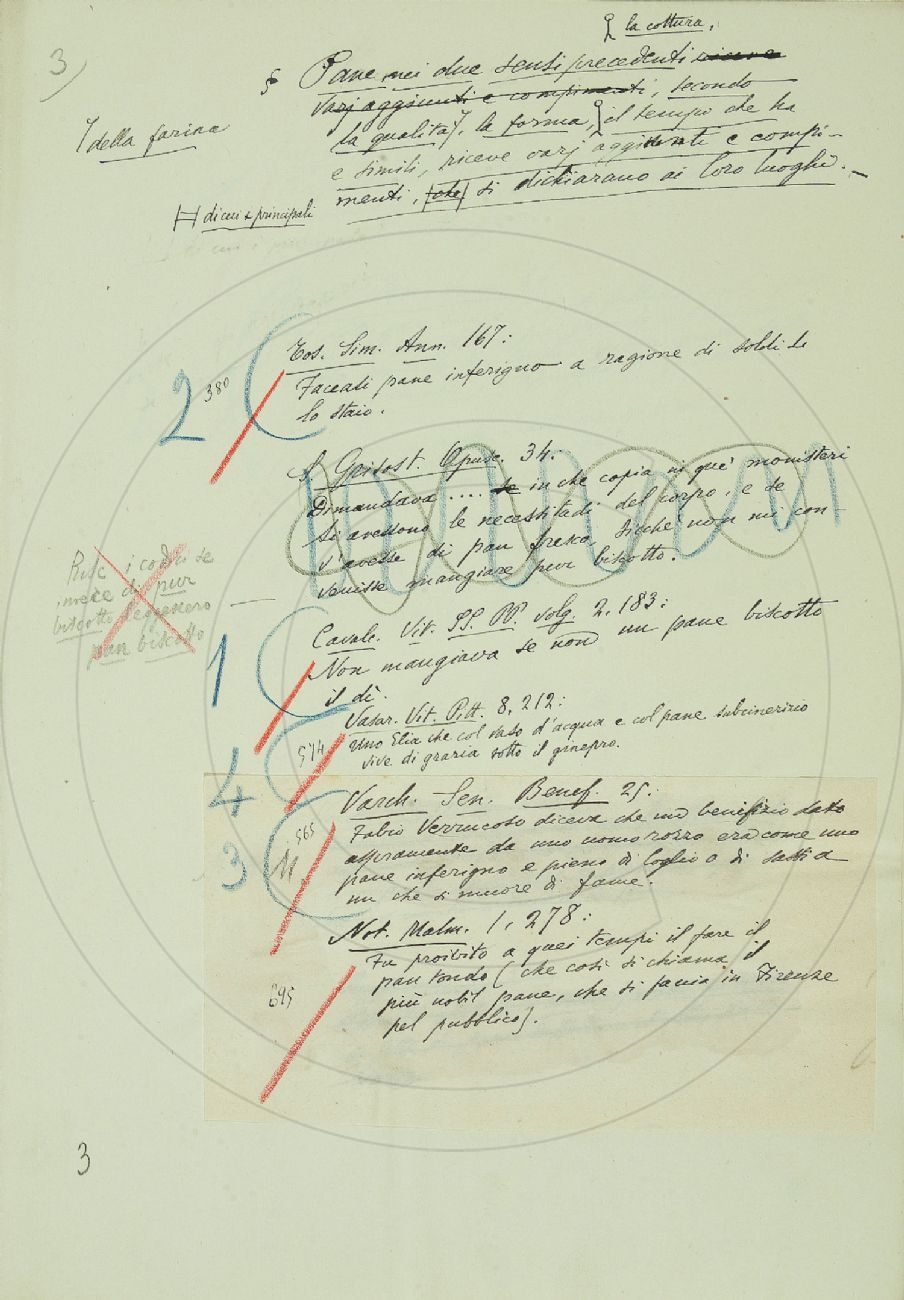 3)
la cottura,
§ Pane, nei due sensi precedenti riceve
varj aggiunti e compimenti, secondo
la qualità, la forma, il tempo che ha
e simili, riceve varj aggiunti e compi-
menti, che si dichiarano ai loro luoghi. –
della farina
di cui + principali
Tos. Sim. Ann. 167:
Facciasi pane inferigno a ragione di soldi
lo staio.
2
380
S. Grisost. Opusc. 34:
Dimandava .... se in che copia in que' monisteri
si avessono le necessitadi del corpo, e se
s'avesse di pan fresco, sicchè non mi con-
venisse mangiare pur biscotto.
i codici se
invece di pur
biscotto leggessero
pan biscotto
Cavalc. Vit. SS. PP. volg. 2, 183:
Non mangiava se non un pane biscotto
il dì.
1
Vasar. Vit. Pitt. 8, 212:
Uno Elia che col vaso d'acqua e col pane subcinerino
vive di grazia sotto il ginepro.
4
574
Varch. Sen. Benef. 25:
Fabio Verrucoso diceva che un benefizio dato
aspramente da uno uomo rozzo era come uno
pane inferigno e pieno di loglio o di sassi a
un che si muore di fame.
3
565
Not. Malm. 1, 278:
Fu proibito a quei tempi il fare il
pan tondo (che così si chiama il
più nobil pane, che si faccia in Firenze
pel pubblico).
695
3